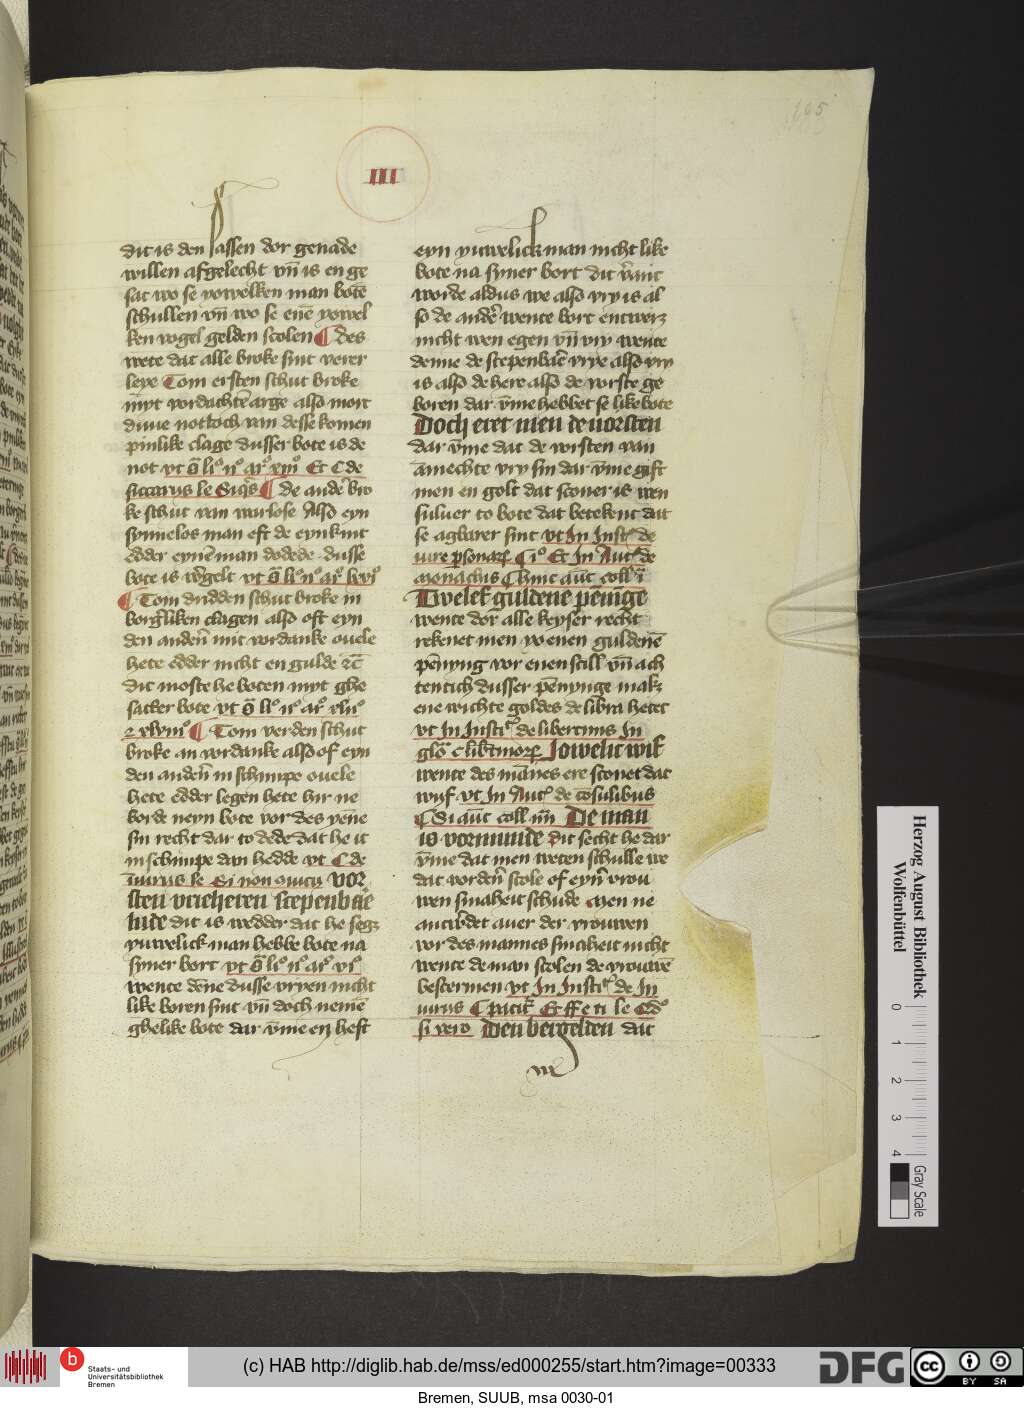 165
III
dit is den sassen dor genade
willen afgelecht vn̄ is en ge
sat wo se yowelken man botē
schullen vn̄ wo se enē yowel
ken vogel gelden scolen ¶ des
wete dat alle broke sint verer
leye Tom ersten schut broke
myt vordachtē arge also mort
duue nottoch van desse komen
pinlike clage dusser bote is de
not vt ō li° ii° ar° xiii° Et C de
siccarus le Siqs ¶ de andē bro
ke schut van warlose Also eyn
synnelos man eft de eyn kint
edder eynē man dodede dusse
bote is v̄gelt vt ō li° ii° ar°
¶ Tom drudden schut broke in
borgliken clagen also oft eyn
den andeñ mit vordanke ouele
hete edder nicht en gulde
dit moste he boten myt ghe
satter bote vt ō li° ii° ar° xlii°
¶ Tom verden schut
broke an vordanke also of eyn
den andeñ in schimpe ouele
hete edder legen hete hir ne
borde neyn bote vor des yene
sin recht dar to dede dat he it
in schimpe dan hedde vt C de
iuurus le Si non quicu vor
sten vrieheren scepenbaē
lude dit is wedder dat he segz
yuwelick man hebbe bote na
syner bort vt ō li° ii° ar° vi°
wente dēne dusse vryen nicht
like boren sint vn̄ doch nemē
ghelike bote dar v̄me en heft
eyn yuwelick man nicht like
bote na syner bort dit
worde aldus we also vry is al
so de andē wente bort entwerz
nicht wen egen vn̄ vry wente
denne de scepenbaē vrye also vry
is also de here also de vorste ge
boren dar v̄me hebbet se like bote
Doch eret men de uorsten
dar v̄me dat de vorsten van
āmechte vry sin dar v̄me gift
men en golt dat sconer is wen
suluer to bote dat betekent dat
se agbarer sint vt In Inst de
iure psonar C i° Et In Auct de
monachis C hinc aut coll i
Twelef guldene penige
wente dor alle keyser recht
rekenet men yo enen guldenē
pēnyng vor enen scill vn̄ ach
tentich dusser pēnynge makz
ene wichte goldes de libra hetet
vt In Insti de libertinis In
glo C libtinor Jowelic wif
wente des mānes ere sconet dat
wyf vt In Auct de cosulibus
C Si aut coll iiii De man
is vormunde dit secht he dar
v̄me dat men weten schulle we
dat vordeñ scole of eyñ vrou
wen smaheit schude Men ne
antwrdet auer der vrouwen
vor des mannes smaheit nicht
wente de man scolen de vrouwē
bescermen vt In Insti de In
iurus C patit Et ff e ti le
si vero Den bergelden dat
Herzog August Bibliothek
Wolfenbüttel
0
1
2
3
4
Gray Scale
b
Staats- und
Universitätsbibliothek
Bremen
(c) HAB http://diglib.hab.de/mss/ed000255/start.htm?image=00333
DFG
cc
BY
SA
Bremen, SUUB, msa 0030-01